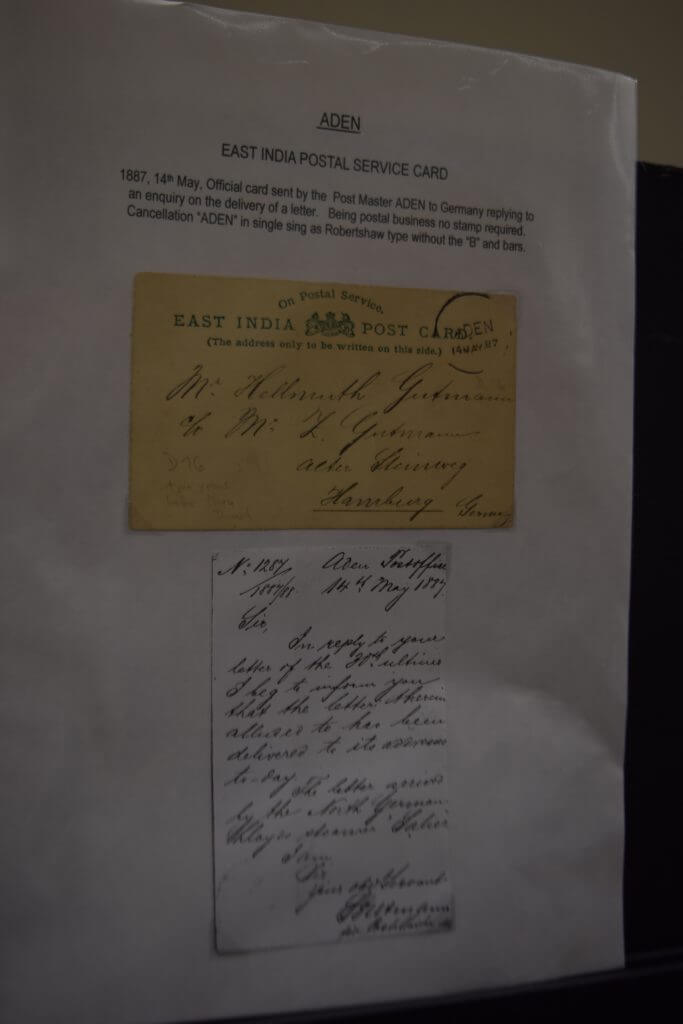 ADEN
EAST INDIA POSTAL SERVICE CARD
1887, 14th May, Official card sent by the Post Master ADEN to Germany replying to
an enquiry on the delivery of a letter. Being postal business no stamp required.
Cancellation "ADEN" in single sing as Robertshaw type without the "B" and bars.
On Postal Service.
EAST INDIA POST CARD
(The address only to be written on this side.)
ADEN
14 MAY 87
Mr. Hellmuth Gutmann
c/o Mr. L. Gutmann
alter Steinweg
Hamburg Germany
D76
No. 1287 Aden Postoffice
1887/88 14th May 1887
Sir,
In reply to your
letter of the 30th ultimo
I beg to inform you
that the letter therein
alluded to has been
delivered to its addressee
to-day.
The letter arrived
by the North German
steamer "Salier"
I am
Sir
your obt Servant